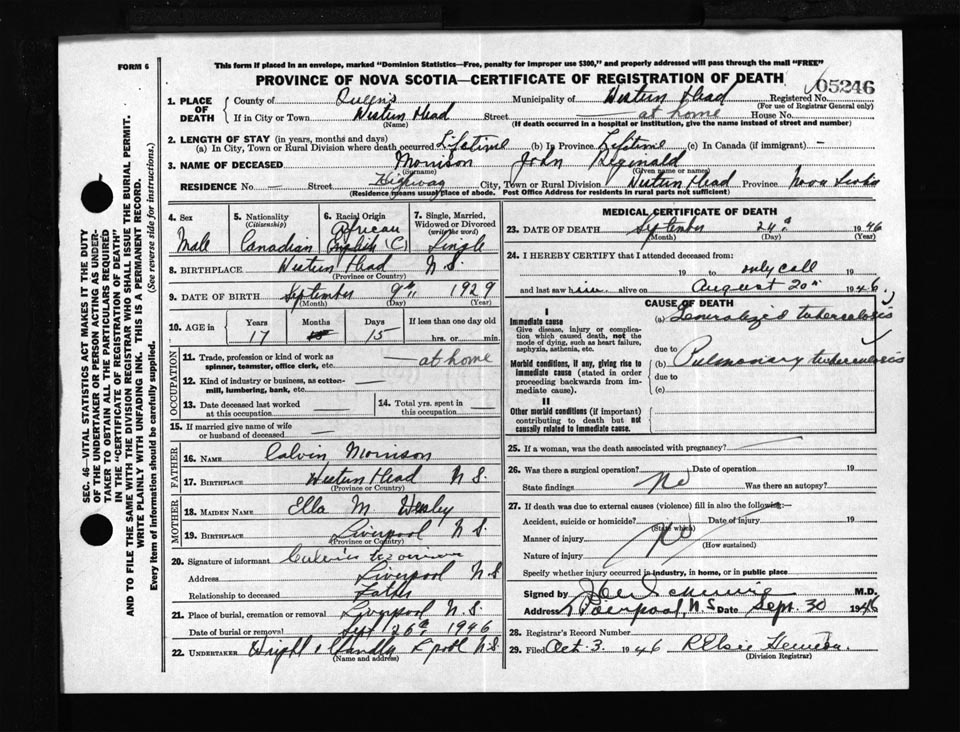 FORM 6
This form if placed in an envelope, marked "Dominion Statistics—Free, penalty for improper use $300," and properly addressed will pass through the mail "FREE"
PROVINCE OF NOVA SCOTIA—CERTIFICATE OF REGISTRATION OF DEATH
05246
1. PLACE OF DEATH { County of Queens Municipality of Western Head Registered No.
(For use of Registrar General only)
If in City or Town Western Head Street at home House No.
(Name) (If death occurred in a hospital or institution, give the name instead of street and number)
2. LENGTH OF STAY (in years, months and days)
(a) In City, Town or Rural Division where death occurred Lifetime (b) In Province Lifetime (c) In Canada (if immigrant) —
3. NAME OF DECEASED Morrison John Reginald
(Surname) (Given name or names)
RESIDENCE No. — Street Highway City, Town or Rural Division Western Head Province Nova Scotia
(Residence means usual place of abode. Post Office Address for residents in rural parts not sufficient)
4. Sex
Male
5. Nationality
(Citizenship)
Canadian
6. Racial Origin
African
English (C)
7. Single, Married, Widowed or Divorced
(write the word)
Single
8. BIRTHPLACE Western Head N.S.
(Province or Country)
9. DATE OF BIRTH September 9th, 1929
(Month) (Day) (Year)
10. AGE in { Years Months Days If less than one day old
17 15 hrs. or min.
OCCUPATION
11. Trade, profession or kind of work as spinner, teamster, office clerk, etc. — at home
12. Kind of industry or business, as cotton-mill, lumbering, bank, etc. —
13. Date deceased last worked at this occupation —
14. Total yrs. spent in this occupation —
15. If married give name of wife or husband of deceased —
FATHER
16. NAME Calvin Morrison
17. BIRTHPLACE Western Head N.S.
(Province or Country)
MOTHER
18. MAIDEN NAME Ella M. Wesley
19. BIRTHPLACE Liverpool N S
(Province or Country)
20. Signature of informant
Address Liverpool N.S
Relationship to deceased Father
21. Place of burial, cremation or removal Liverpool N.S.
Date of burial or removal Sept 26th, 1946
22. UNDERTAKER Wright & Chandler L'pool N.S.
(Name and address)
MEDICAL CERTIFICATE OF DEATH
23. DATE OF DEATH September 24th 1946
(Month) (Day) (Year)
24. I HEREBY CERTIFY that I attended deceased from:
19 to only call 19
and last saw him alive on August 20th 1946.
CAUSE OF DEATH
I
Immediate cause (a) Generalized tuberculosis
Give disease, injury or complication which caused death, not the mode of dying, such as heart failure, asphyxia, asthenia, etc.
due to
Morbid conditions, if any, giving rise to immediate cause (stated in order proceeding backwards from immediate cause). (b) Pulmonary tuberculosis
due to
(c)
II
Other morbid conditions (if important) contributing to death but not causally related to immediate cause.
25. If a woman, was the death associated with pregnancy? —
26. Was there a surgical operation? Date of operation 19
State findings No Was there an autopsy?
27. If death was due to external causes (violence) fill in also the following:—
Accident, suicide or homicide? Date of injury 19
(State which)
Manner of injury No
(How sustained)
Nature of injury
Specify whether injury occurred in industry, in home, or in public place
Signed by M.D.
Address Liverpool, N.S Date Sept. 30 1946
28. Registrar's Record Number
29. Filed Oct. 3. 1946
(Division Registrar)
SEC. 46—VITAL STATISTICS ACT MAKES IT THE DUTY
OF THE UNDERTAKER OR PERSON ACTING AS UNDER-
TAKER TO OBTAIN ALL THE PARTICULARS REQUIRED
IN THE "CERTIFICATE OF REGISTRATION OF DEATH"
AND TO FILE THE SAME WITH THE DIVISION REGISTRAR WHO SHALL ISSUE THE BURIAL PERMIT.
WRITE PLAINLY WITH UNFADING INK. THIS IS A PERMANENT RECORD.
Every item of information should be carefully supplied. (See reverse side for instructions.)